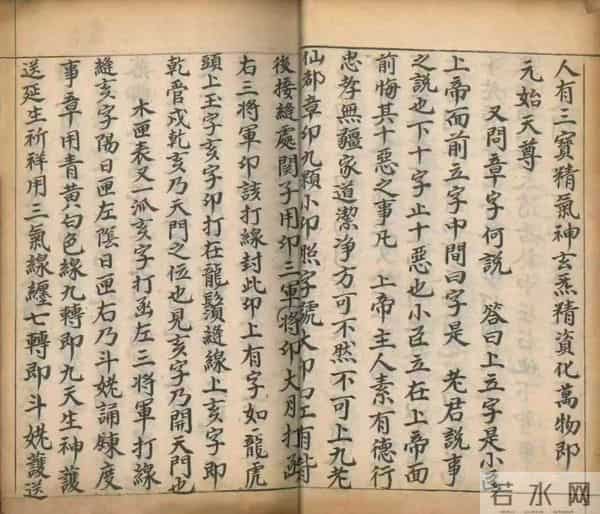 人有三寶精氣神玄炁精資化萬物即
元始天尊
又問章字何說 答曰上立字是小臣
上帝而前立字中間曰字是 老君說事
之說也下十字止十惡也小臣立在上帝面
前悔其十惡之事凡 上帝主人素有德行
忠孝無疆家道潔淨方可不然不可上九老
仙都章印九顆小印照字號大印
後接縫處関子用印三軍將印大月打函
右三將軍印該打線封此印上有字如龍虎
頭上玉字亥字印打在龍鬚縫線上亥字即
乾管戌乾亥乃天門之位也見亥字乃開天門也
木匣表文一派亥字打函左三將軍打線
縫亥字陽日匣左陰日匣右乃斗姥誦鍊度
事章用青黃白色線九轉即九天生神護
送延生祈祥用三氣線纏七轉即斗姥護送
若水网